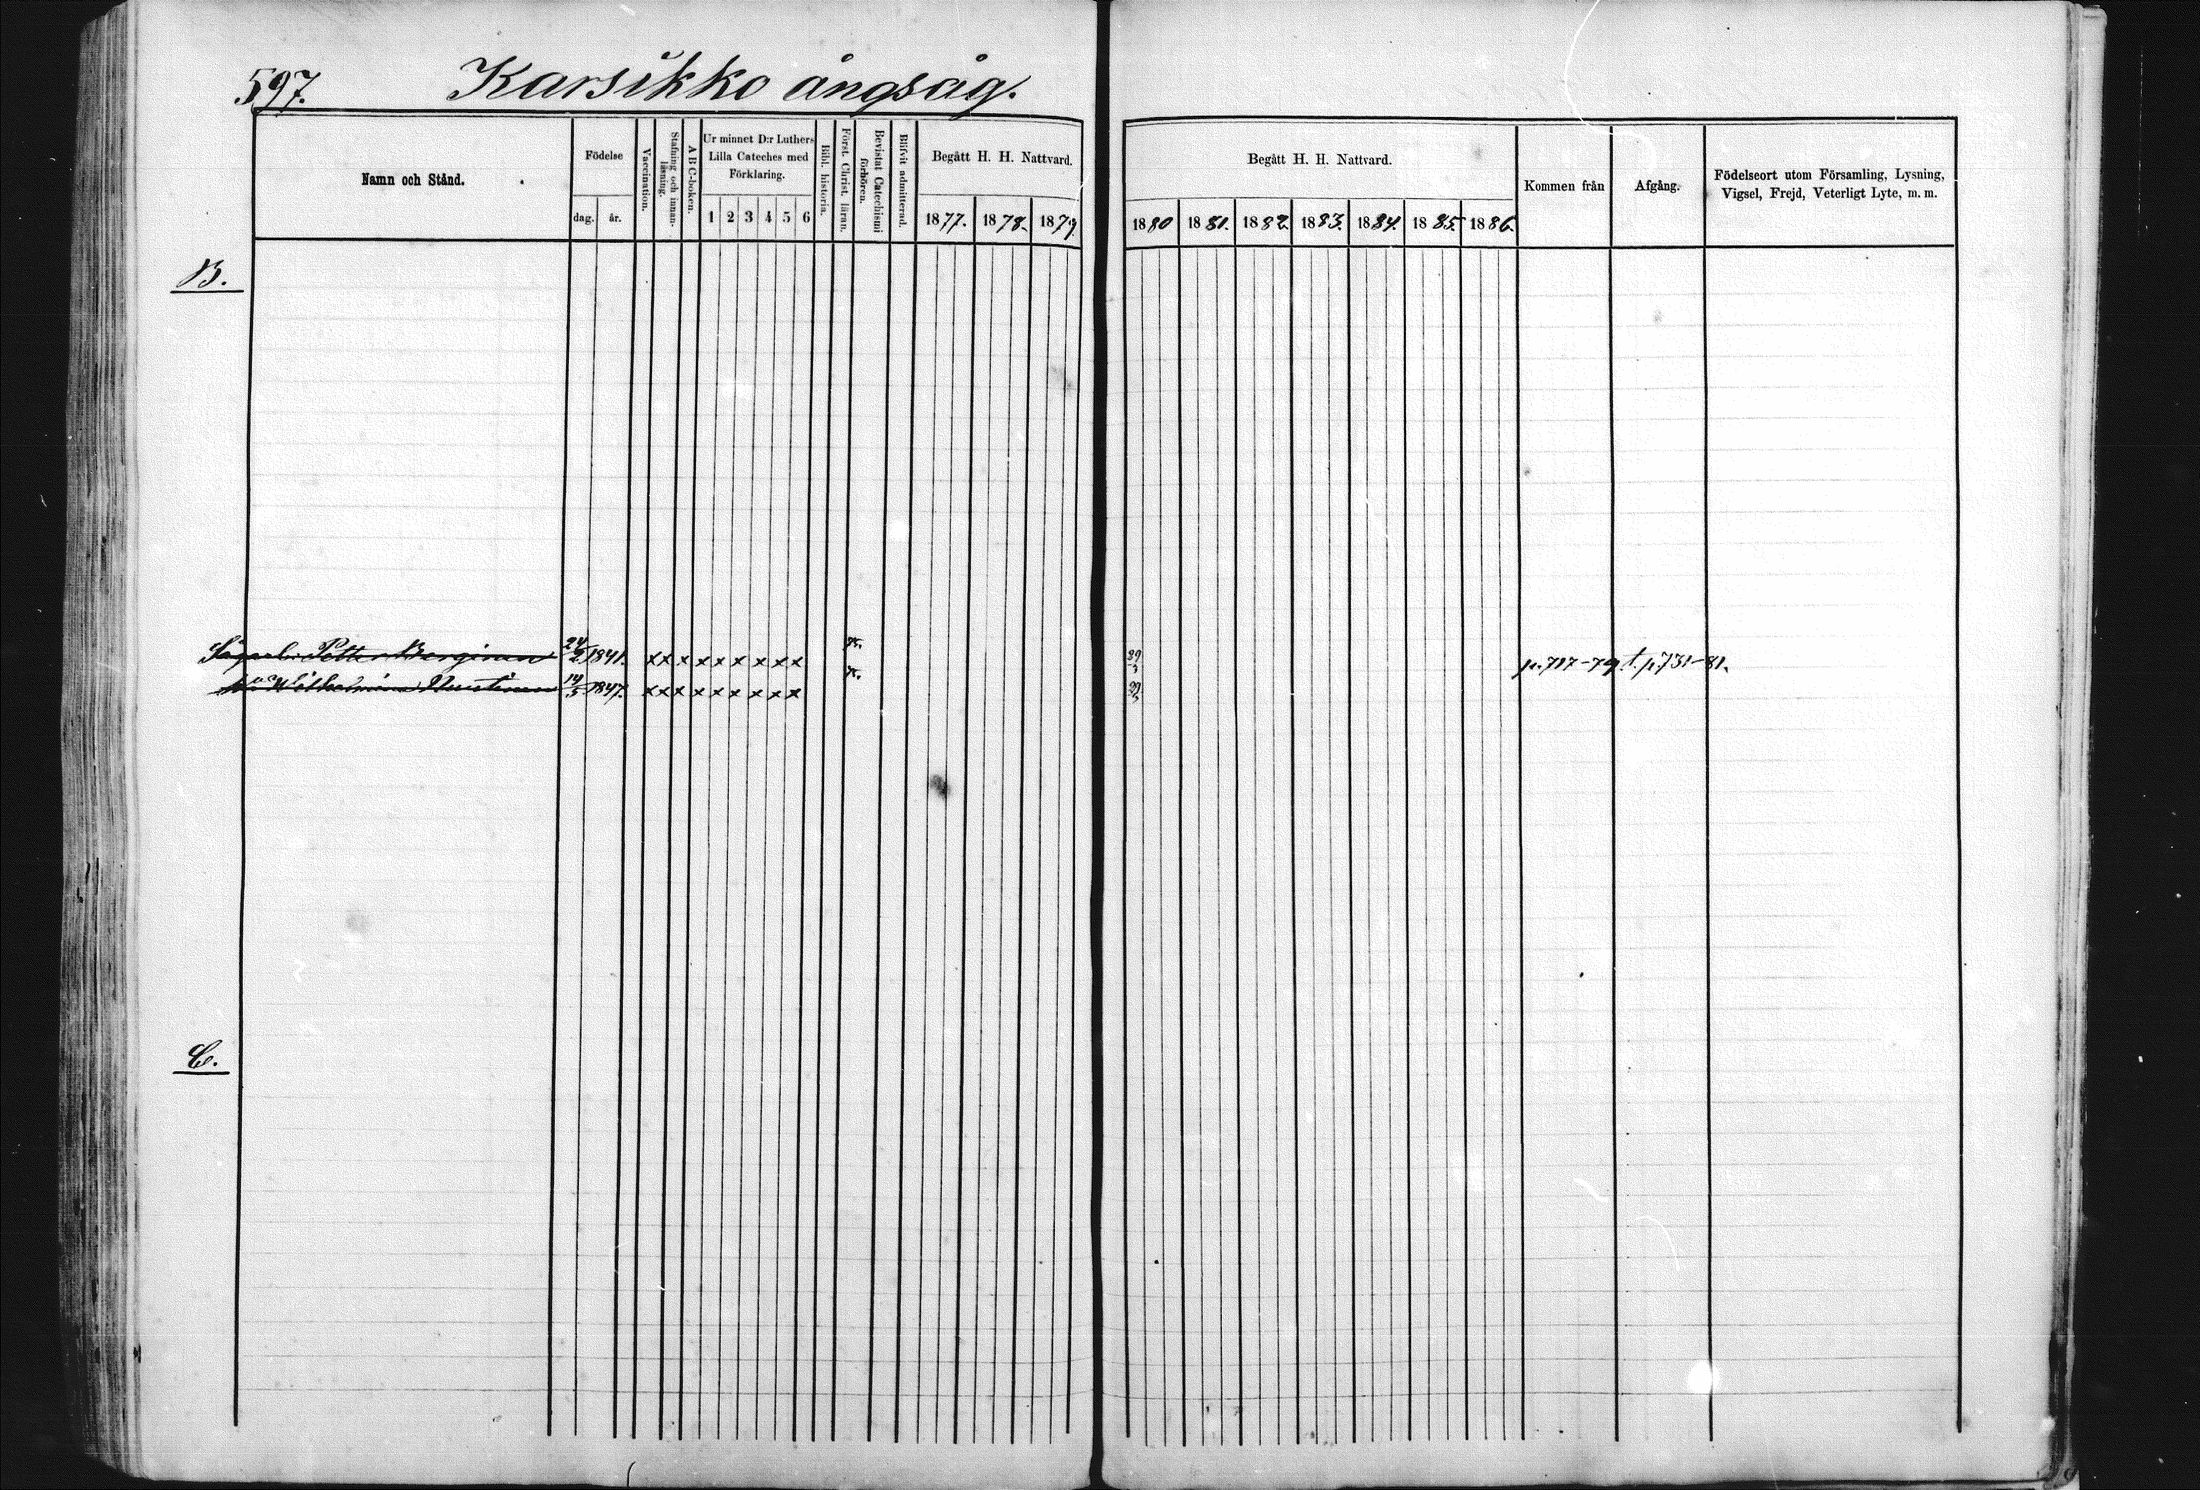 597. Karsikko ångsåg.
Namn och Stånd.
Födelse
dag. år.
Vaccination.
Stafning och innanläsning.
A B C-boken.
Ur minnet D:r Luthers Lilla Cateches med Förklaring.
1 2 3 4 5 6
Bibl. historia.
Först. Christ. läran.
Bevistat Catechismi förhören.
Blifvit admitterad.
Begått H. H. Nattvard.
1877. 1878. 1879.
Begått H. H. Nattvard.
1880 1881. 1882. 1883. 1884. 1885. 1886.
Kommen från
Afgång.
Födelseort utom Församling, Lysning, Vigsel, Frejd, Veterligt Lyte, m. m.
B.
Petter 24/2 1841. x x x x x x x x x p. 717-79 t. p. 731-81.
Wilhelmina 14/5 1847. x x x x x x x x x
C.